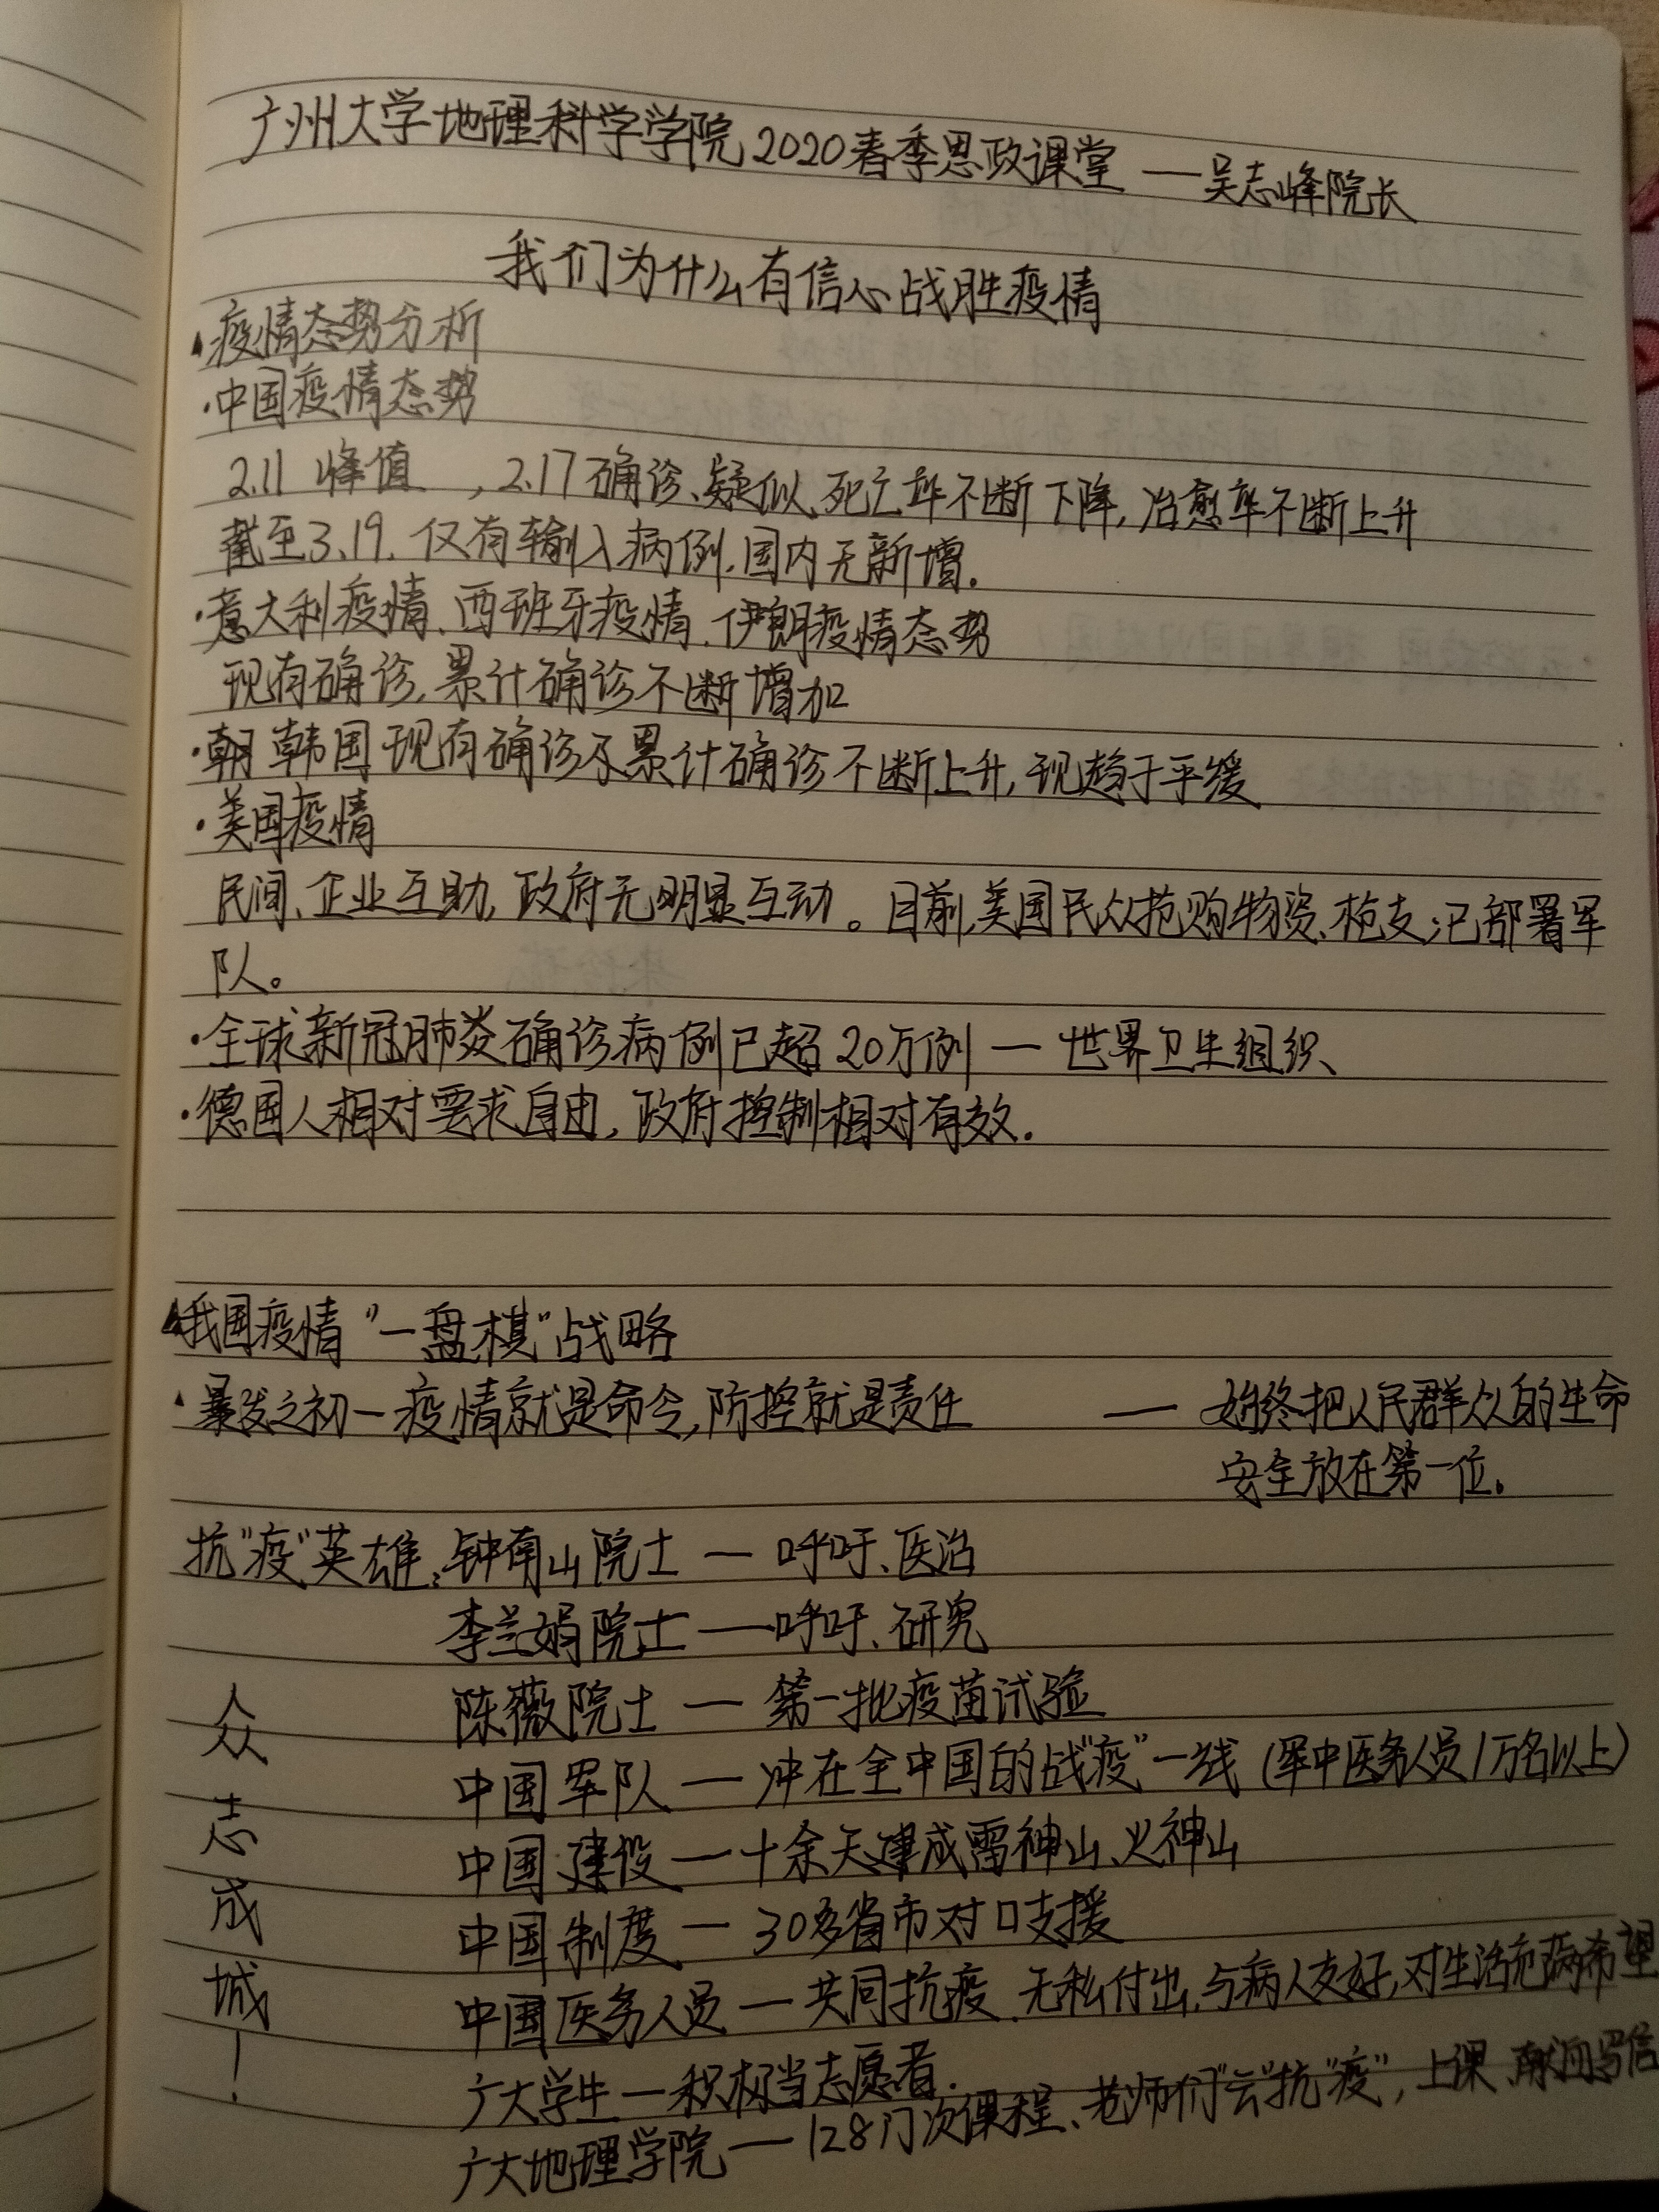 广州大学地理科学学院2020春季思政课堂 —吴志峰院长
我们为什么有信心战胜疫情
▲疫情态势分析
·中国疫情态势
2.11 峰值 ,2.17确诊、疑似、死亡率不断下降,治愈率不断上升
截至3.19.仅有输入病例.国内无新增.
·意大利疫情、西班牙疫情、伊朗疫情态势
现有确诊,累计确诊不断增加
·朝 韩国现有确诊及累计确诊不断上升,现趋于平缓
·美国疫情
民间、企业互助,政府无明显互动。目前,美国民众抢购物资、枪支;已部署军
队。
·全球新冠肺炎确诊病例已超20万例 — 世界卫生组织、
·德国人相对要求自由,政府控制相对有效.
▲我国疫情"一盘棋"战略
·暴发之初—疫情就是命令,防控就是责任 — 始终把人民群众的生命
安全放在第一位.
抗"疫"英雄:钟南山院士 — 呼吁、医治
李兰娟院士 —呼吁、研究
陈薇院士 — 第一批疫苗试验
中国军队 — 冲在全中国的战"疫"一线 (军中医务人员1万名以上)
中国建设 — 十余天建成雷神山、火神山
中国制度 — 30多省市对口支援
中国医务人员 — 共同抗疫.无私付出.与病人友好,对生活充满希望
广大学生 — 积极当志愿者.
广大地理学院 — 128门次课程、老师们"云"抗"疫",上课、写信
众志成城!